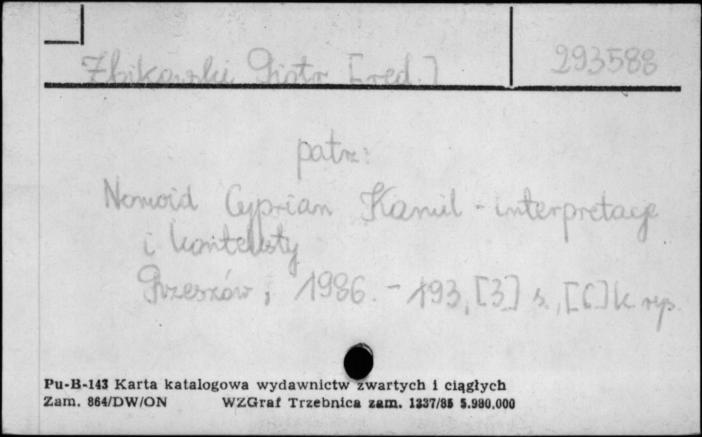 Żbikowski Piotr [red.] 293588
patrz:
Norwid Cyprian Kamil - interpretacje
i konteksty
Rzeszów, 1986. - 193, [3] s., [6] k ryc.
Pu-B-143 Karta katalogowa wydawnictw zwartych i ciągłych
Zam. 864/DW/ON WZGraf Trzebnica zam. 1337/85 5.980.000